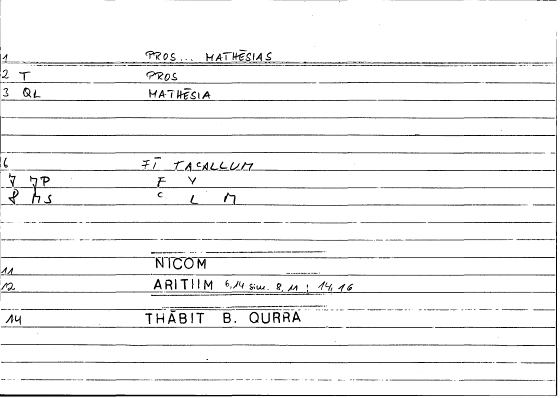 1 PROS... MATHĒSIAS
2 T PROS
3 QL MATHĒSIA
6 FĪ TACALLUM
7 MP F Y
8 MS C L M
11 NICOM
12 ARITIIM 6,14 sim. 8,11; 14,16
14 THĀBIT B. QURRA